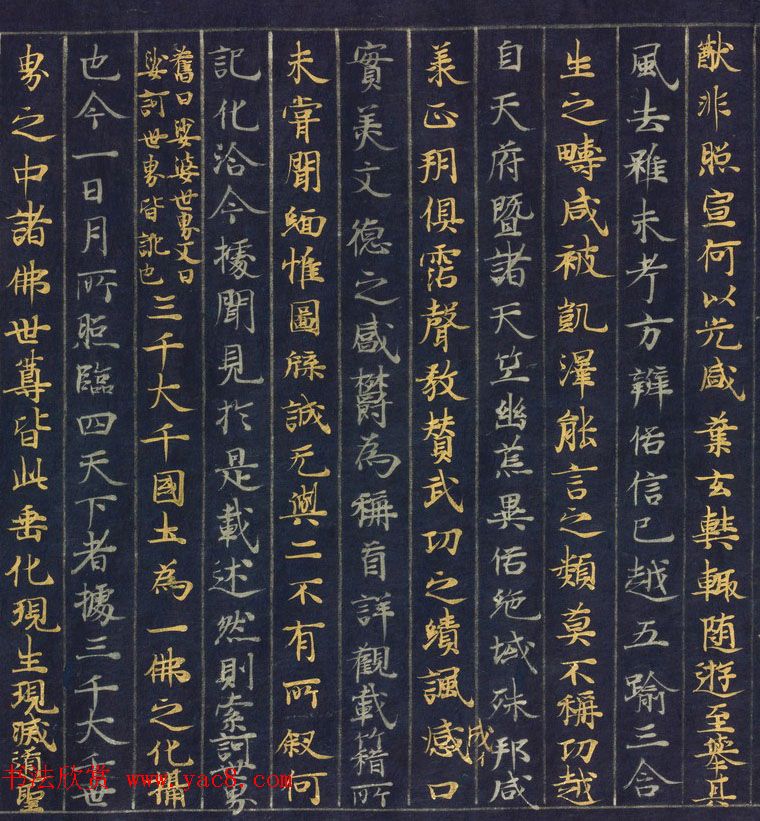 猷非照宣何以光咸葉玄奘輙随遊至舉其
風去雖未考方辨俗信已越五踰三合
生之疇咸被凱澤能言之類莫不稱功越
自天府暨諸天竺幽荒異俗絶域殊邦咸
羕正朔俱霑聲教賛武功之績諷感口
成イ
實美文德之盛欝為稱首詳觀載籍所
未甞聞緬惟圖牒誠无與二不有所叙何
記化洽今據聞見於是載述然則索訶世界
舊曰娑婆世界文曰
娑訶世界皆訛也
三千大千國土為一佛之化攝
也今一日月所照臨四天下者據三千大千世
界之中諸佛世尊皆此垂化現生現滅導聖
书法欣赏 www.yac8.com